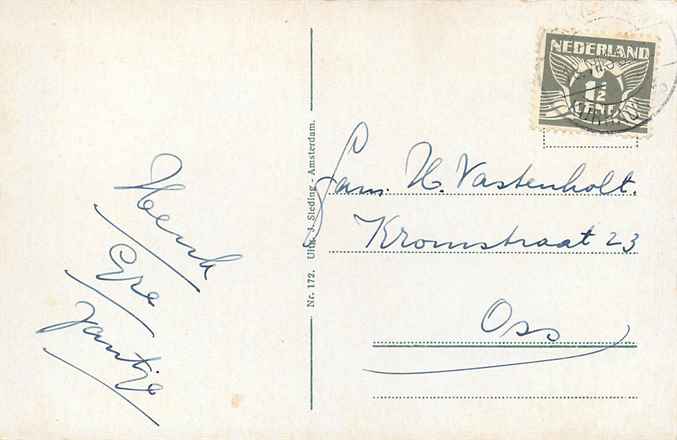 NEDERLAND
1½
CENT
Fam. H. Vastenholt.
Kromstraat 23
Oss
Henk
Gre
Jantje
Nr. 172. Uitg. J. Sleding - Amsterdam.